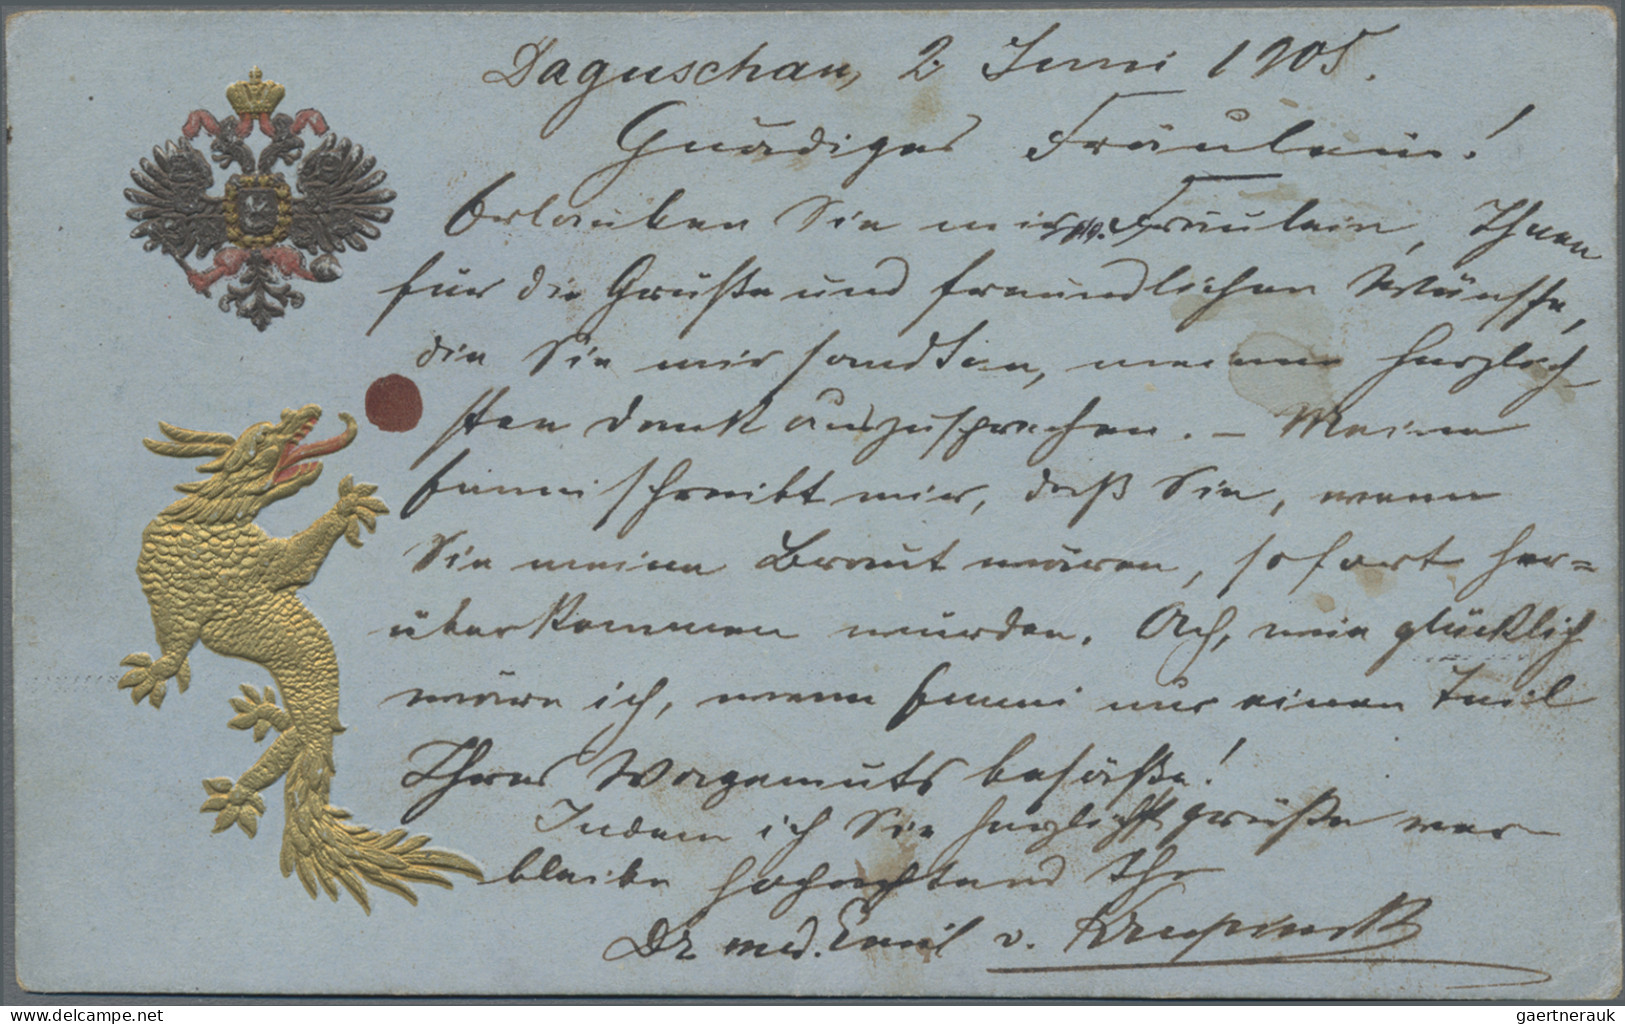 Daguschan, 2. Juni 1905.
Gnädiges Fräulein!
Erlauben Sie mir, Fräulein, Ihnen
für die Grüße und freundlichen Wünsche,
die Sie mir sandten, meinen herzlich-
sten Dank auszusprechen. – Meine
Fanni schreibt mir, daß Sie, wenn
Sie meine Braut wären, sofort her=
überkommen würden. Ach, wie glücklich
wäre ich, wenn Fanni nur einen Teil
Ihres Wagemuts besäße!
Indem ich Sie herzlichst grüße ver-
bleibe hochachtend Ihr
Dr med. Emil v.
delcampe.net
gaertnerauk